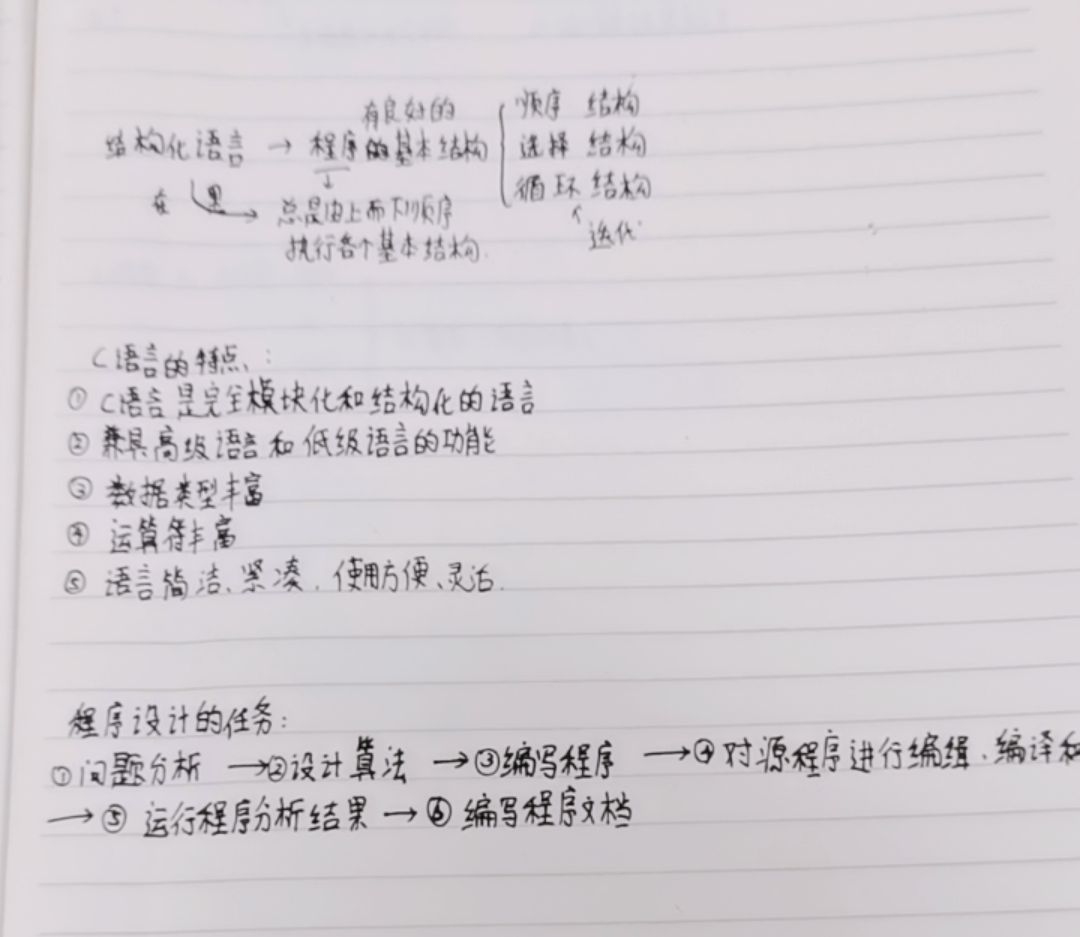 有良好的
结构化语言 → 程序的基本结构
顺序 结构
选择 结构
循环 结构
迭代
总是由上而下顺序
执行各个基本结构.
C语言的特点、:
① C语言是完全模块化和结构化的语言
② 兼具高级语言和低级语言的功能
③ 数据类型丰富
④ 运算符丰富
⑤ 语言简洁、紧凑,使用方便、灵活.
程序设计的任务:
①问题分析 →②设计算法 →③编写程序 →④对源程序进行编缉、编译和
→⑤ 运行程序分析结果 → ⑥ 编写程序文档